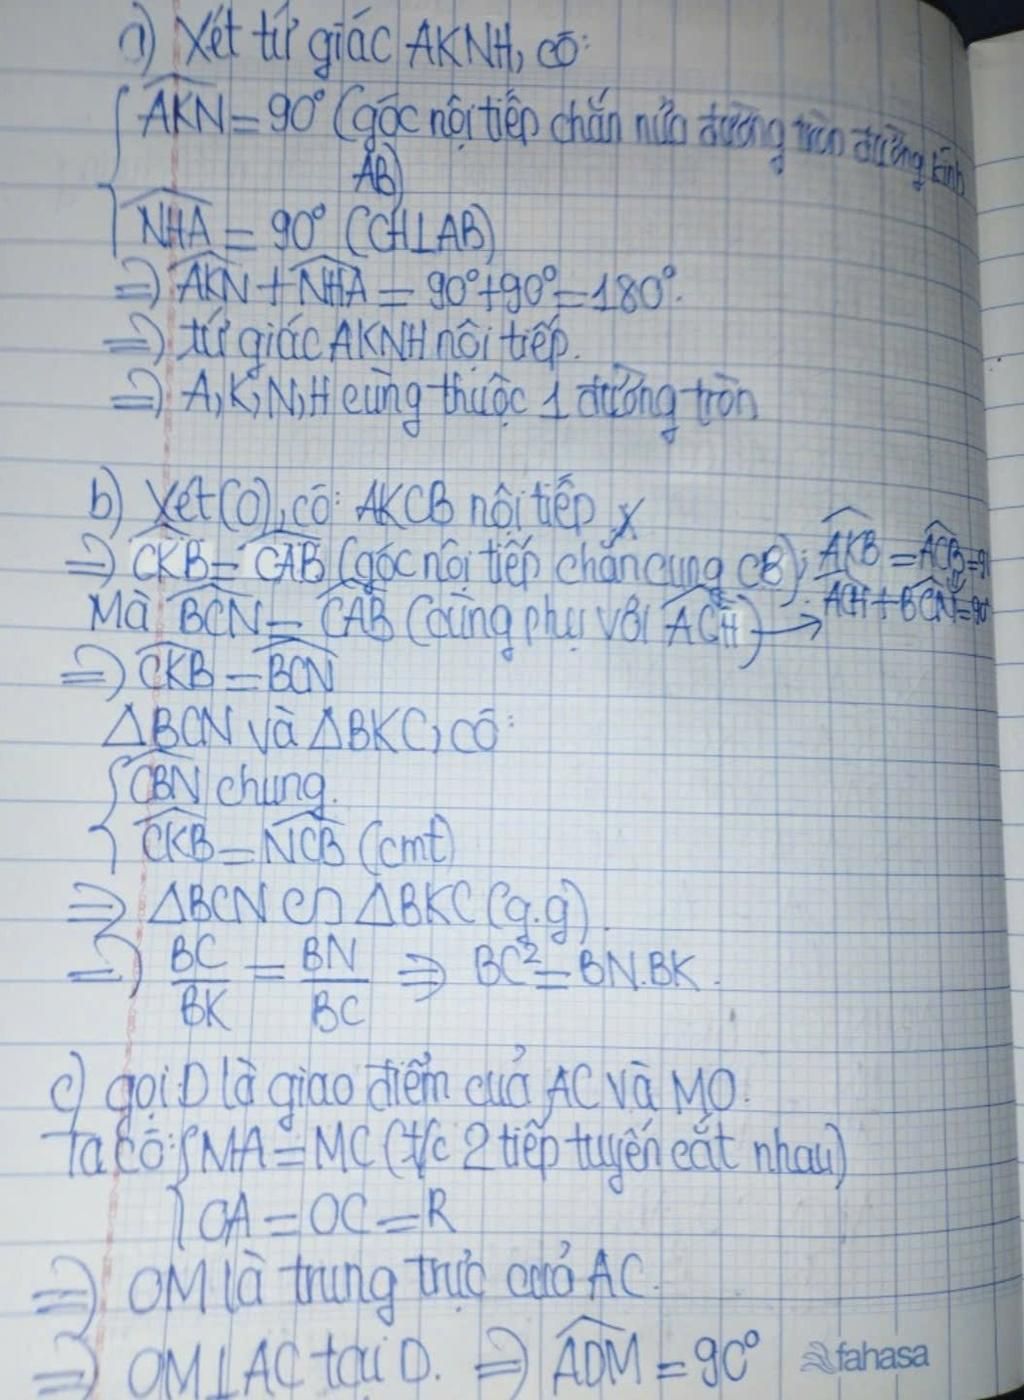 a) Xét tứ giác AKNH, có:
{ \widehat{AKN} = 90° (góc nội tiếp chắn nửa đường tròn đường kính
AB)
\widehat{NHA} = 90° (CH⊥AB)
=) \widehat{AKN} + \widehat{NHA} = 90°+90°=180°.
=) tứ giác AKNH nội tiếp.
=) A,K,N,H cùng thuộc 1 đường tròn
b) Xét (O), có: AKCB nội tiếp
=) \widehat{CKB} = \widehat{CAB} (góc nội tiếp chắn cung CB); \widehat{AKB} = \widehat{ACB} = 9
Mà \widehat{BCN} = \widehat{CAB} (cùng phụ với \widehat{ACH}) → \widehat{ACH} + \widehat{BCN} = 90°
=) \widehat{CKB} = \widehat{BCN}
ΔBCN và ΔBKC, có:
{ \widehat{CBN} chung.
\widehat{CKB} = \widehat{NCB} (cmt)
=) ΔBCN ∽ ΔBKC (g.g).
=) BC/BK = BN/BC => BC² = BN.BK.
c) gọi D là giao điểm của AC và MO.
Ta có: { MA = MC (t/c 2 tiếp tuyến cắt nhau)
OA = OC = R
=) OM là trung trực của AC.
=) OM⊥AC tại D. =) \widehat{ADM} = 90°
fahasa